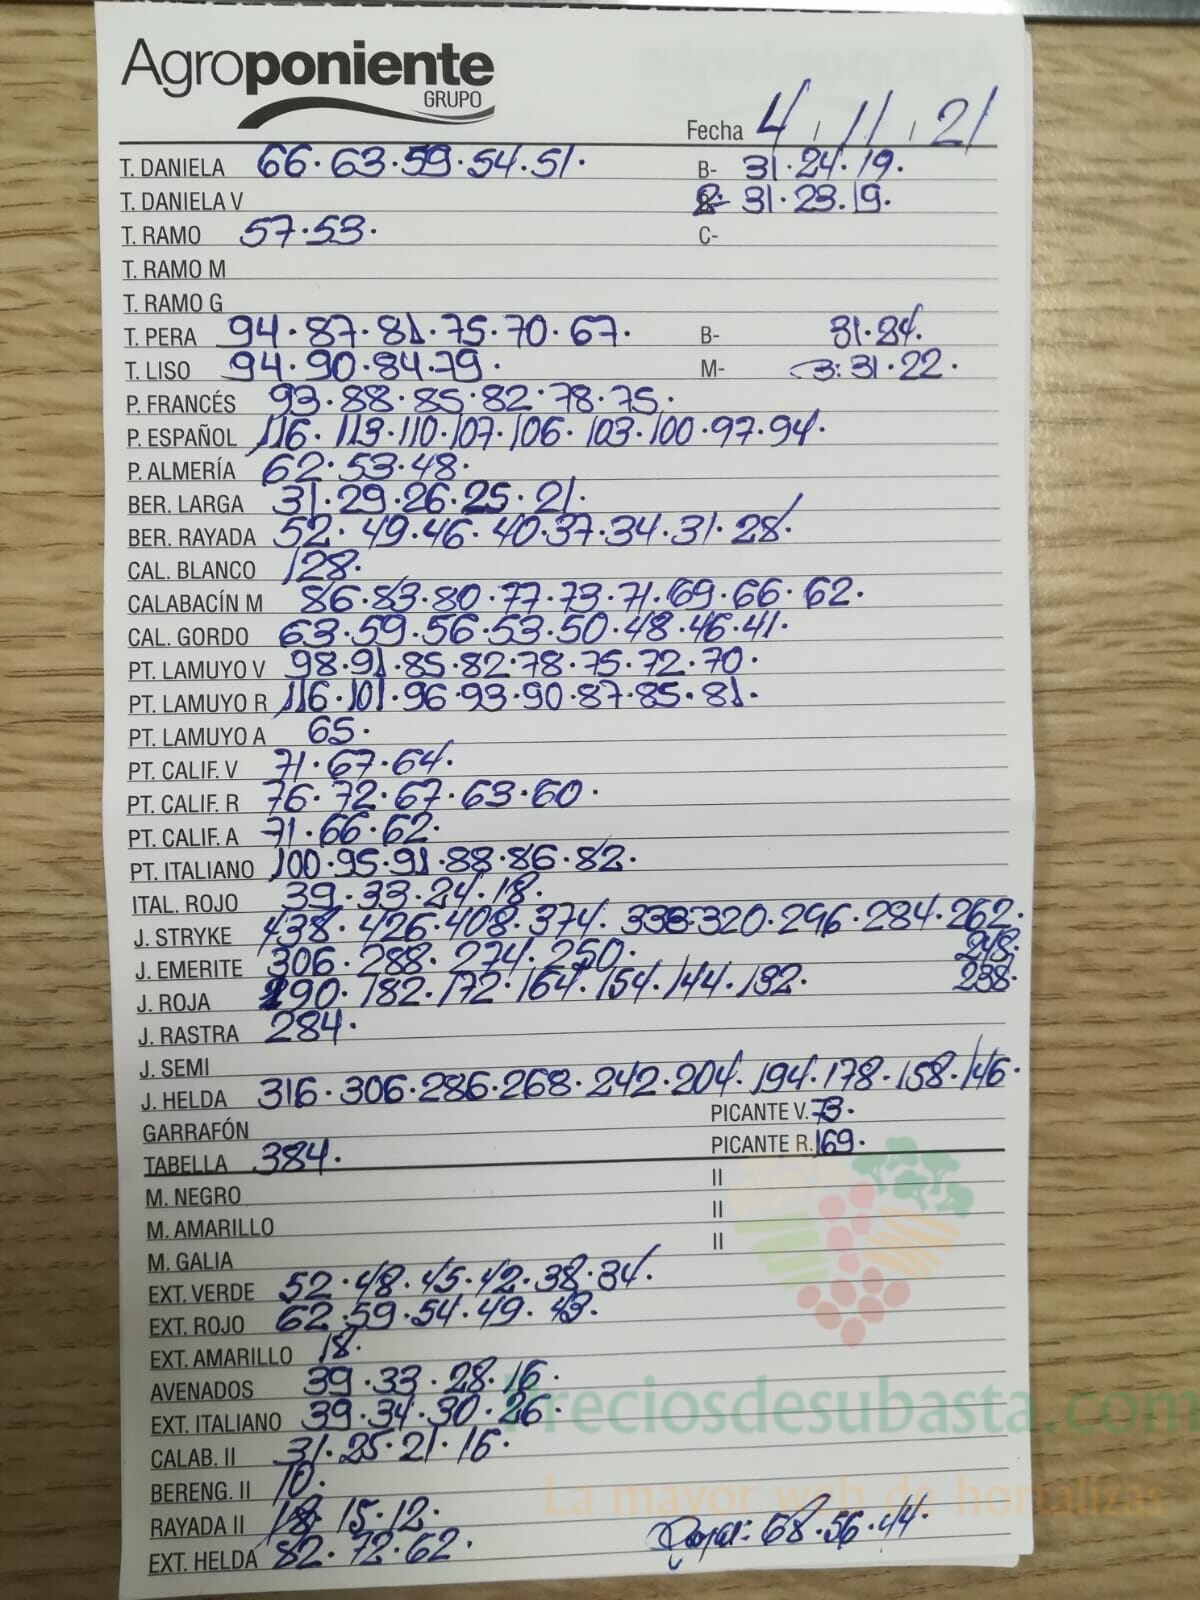 Agroponiente
GRUPO
Fecha 4 / 11 / 21
T. DANIELA 66·63·59·54·51· B- 31·24·19·
T. DANIELA V 31·23·19·
T. RAMO 57·53· C-
T. RAMO M
T. RAMO G
T. PERA 94·87·81·75·70·67· B- 31·24·
T. LISO 94·90·84·79· M- 31·22·
P. FRANCÉS 93·88·85·82·78·75·
P. ESPAÑOL 116·113·110·107·106·103·100·97·94·
P. ALMERÍA 62·53·48·
BER. LARGA 31·29·26·25·21·
BER. RAYADA 52·49·46·40·37·34·31·28·
CAL. BLANCO 128·
CALABACÍN M 86·83·80·77·73·71·69·66·62·
CAL. GORDO 63·59·56·53·50·48·46·41·
PT. LAMUYO V 98·91·85·82·78·75·72·70·
PT. LAMUYO R 116·101·96·93·90·87·85·81·
PT. LAMUYO A 65·
PT. CALIF. V 71·67·64·
PT. CALIF. R 76·72·67·63·60·
PT. CALIF. A 71·66·62·
PT. ITALIANO 100·95·91·88·86·82·
ITAL. ROJO 39·33·24·18·
J. STRYKE 438·426·408·374·338·320·296·284·262·
248·
J. EMERITE 306·288·274·250·
238·
J. ROJA 190·182·172·164·154·144·132·
J. RASTRA 284·
J. SEMI
J. HELDA 316·306·286·268·242·204·194·178·158·146·
GARRAFÓN PICANTE V. 73·
TABELLA 384· PICANTE R. 169·
M. NEGRO II
M. AMARILLO II
M. GALIA II
EXT. VERDE 52·48·45·42·38·34·
EXT. ROJO 62·59·54·49·43·
EXT. AMARILLO 18·
AVENADOS 39·33·28·16·
EXT. ITALIANO 39·34·30·26·
Preciosdesubasta.com
CALAB. II 31·25·21·16·
BERENG. II 10·
La mayor web de hortalizas
RAYADA II 18·15·12·
EXT. HELDA 82·72·62· 68·56·44·